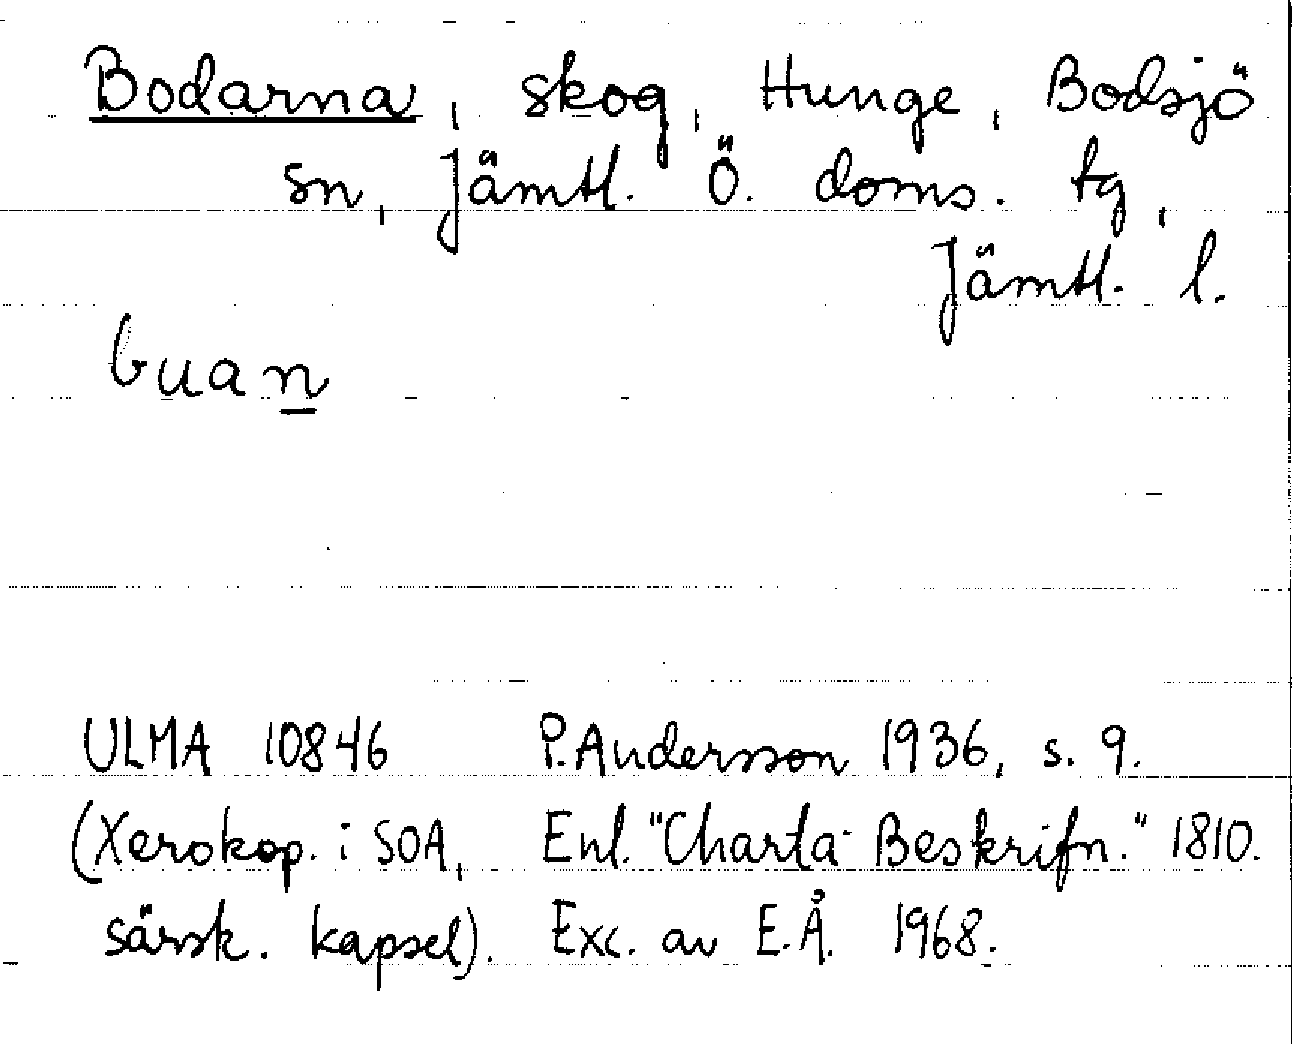 Bodarna, skog, Hunge, Bodsjö
sn, Jämtl. Ö. doms. tg,
Jämtl. l.
buan
ULMA 10846 P. Andersson 1936, s. 9.
(Xerokop. i SOA, Enl. "Charta Beskrifn." 1810.
särsk. kapsel). Exc. av E.Å. 1968.